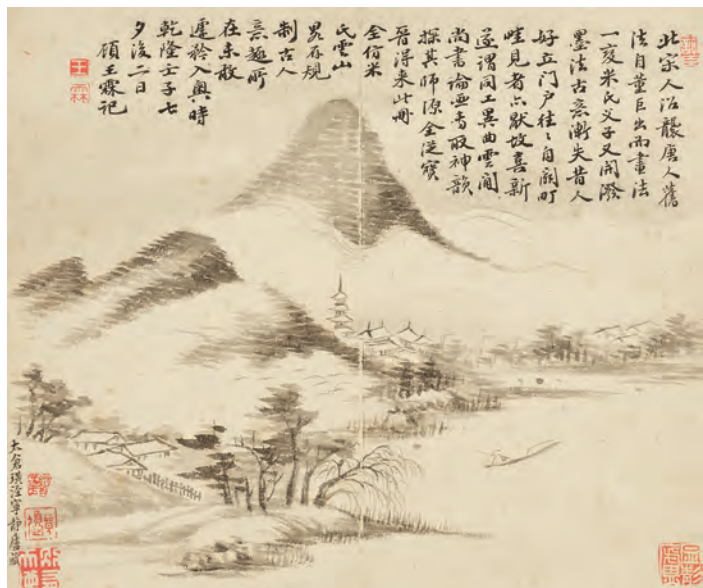 北宋人沿襲唐人舊
法自董巨出而畫法
一变米氏父子又開潑
墨法古意漸失昔人
好立门户往〻自闢町
畦見者亦厭故喜新
遂謂同工異曲雲間
尚書論画專取神韻
探其師源全從寶
晉得来此冊
全仿米
氏雲山
畧存規
制古人
意趣所
在未敢
遽矜入奧時
乾隆壬子七
夕後二日
頋王霖記
王
霖
太倉璜涇寧静廬藏